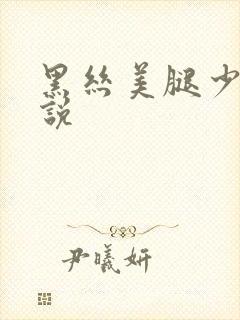 黑丝美腿少
說
尹曦妍